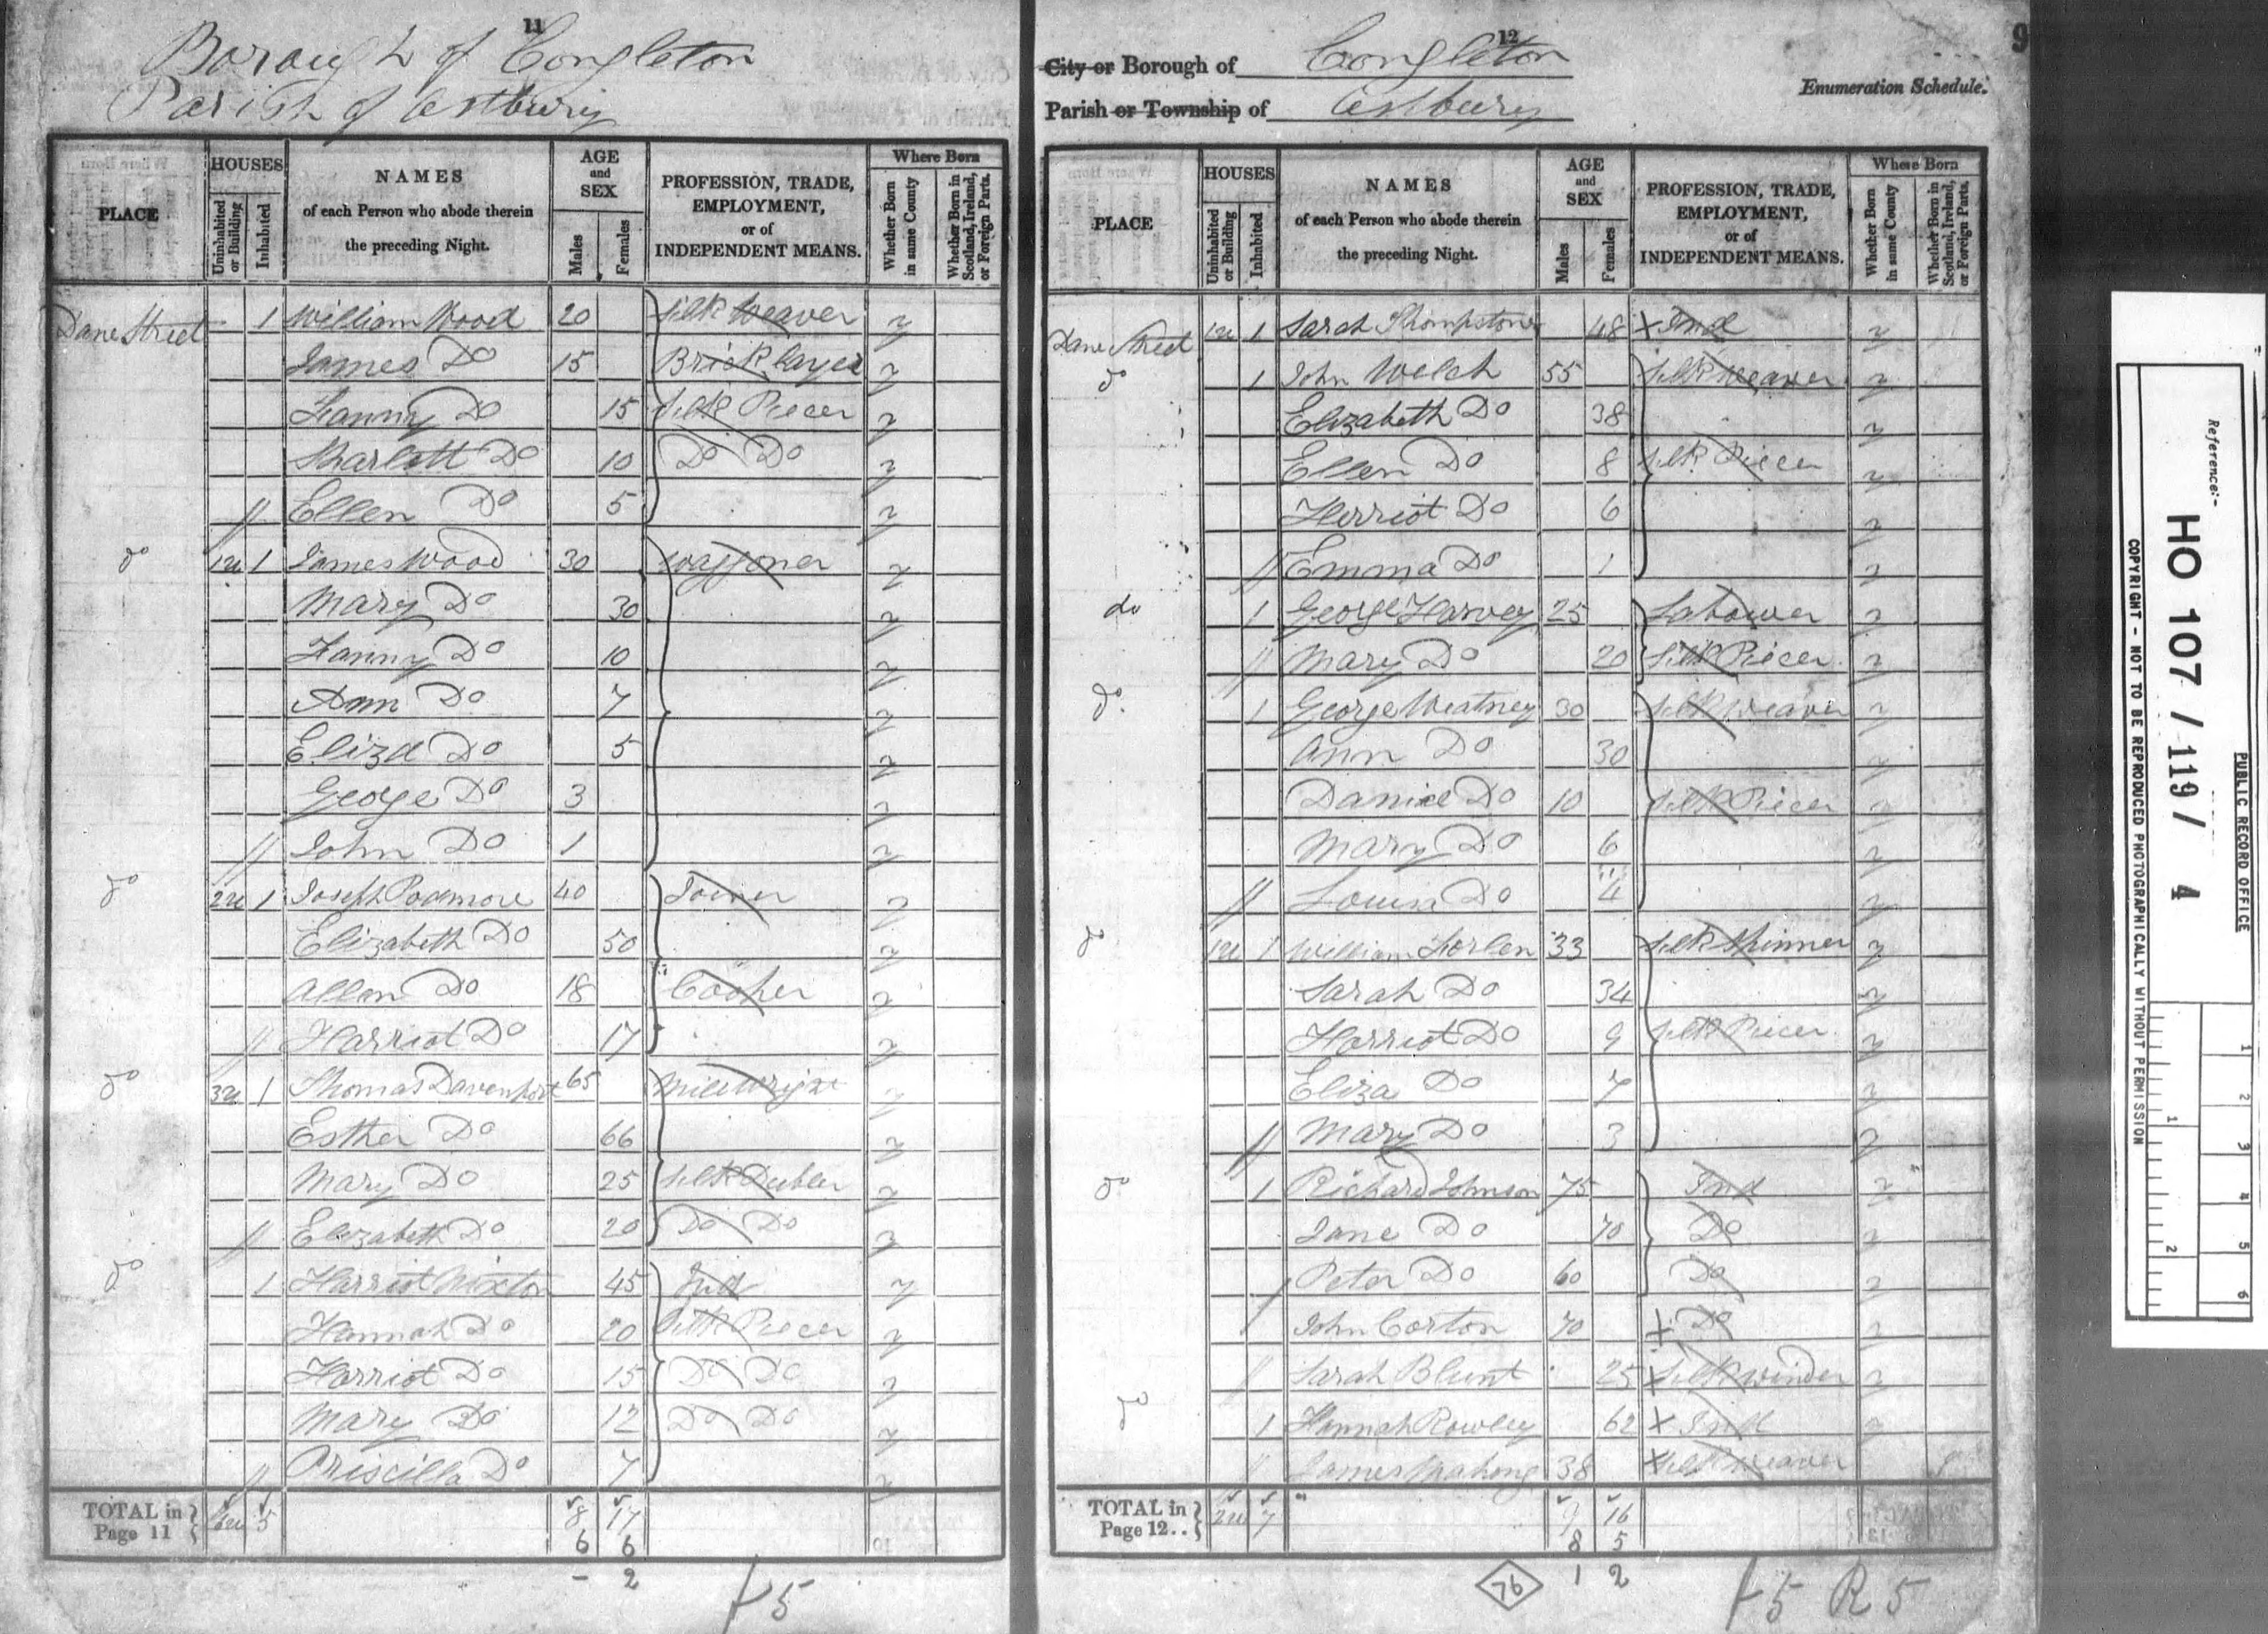 11
Borough of Congleton
Parish of Astbury
PLACE
HOUSES
Uninhabited or Building
Inhabited
NAMES
of each Person who abode therein
the preceding Night.
AGE
and
SEX
Males
Females
PROFESSION, TRADE,
EMPLOYMENT,
or of
INDEPENDENT MEANS.
Where Born
Whether Born in same County
Whether Born in Scotland, Ireland, or Foreign Parts.
Dane Street 1 William Wood 20 Silk Weaver y
James Do 15 Bricklayer y
Fanny Do 15 Silk Piecer y
Sharlott Do 10 Do Do y
Ellen Do 5 y
do 1u 1 James Wood 30 Waggoner y
Mary Do 30 y
Fanny Do 10 y
Ann Do 7 y
Eliza Do 5 y
George Do 3 y
John Do 1 y
do 2u 1 Joseph Podmore 40 Joiner y
Elizabeth Do 50 y
Allen Do 18 Cooper y
Harriot Do 17 y
do 3u 1 Thomas Davenport 65 Millwright y
Esther Do 66 y
Mary Do 25 Silk Dubler y
Elizabeth Do 20 Do Do y
do 1 Harriot Nixton 45 Ind y
Hannah Do 20 Silk Piecer y
Harriot Do 15 Do Do y
Mary Do 12 Do Do y
Priscilla Do 7 y
TOTAL in Page 11 6u 5 8 17
6 6
- 2
+5
12
9
City or Borough of Congleton
Enumeration Schedule.
Parish or Township of Astbury
PLACE
HOUSES
Uninhabited or Building
Inhabited
NAMES
of each Person who abode therein
the preceding Night.
AGE
and
SEX
Males
Females
PROFESSION, TRADE,
EMPLOYMENT,
or of
INDEPENDENT MEANS.
Where Born
Whether Born in same County
Whether Born in Scotland, Ireland, or Foreign Parts.
Dane Street 1u 1 Sarah Thompstone 48 X Ind y
do 1 John Welch 55 Silk Weaver y
Elizabeth Do 38 y
Ellen Do 8 Silk Piecer y
Herriot Do 6 y
Emma Do 1 y
do 1 George Harvey 25 Labower y
Mary Do 20 Silk Piecer y
do 1 George 30 Silk Weaver y
Ann Do 30 y
Daniel Do 10 Silk Piecer y
Mary Do 6 y
Louisa Do 4 y
do 1u 1 William 33 Silk Spinner y
Sarah Do 34 y
Harriot Do 9 Silk Piecer y
Eliza Do 7 y
Mary Do 3 y
do 1 Richard Johnson 75 Ind y
Jane Do 70 Do y
Peter Do 60 Do y
John Corton 70 X Do y
Sarah Blunt 25 X Silk winder y
do 1 Hannah Rowley 62 X Ind y
James 38 X Silk Weaver
TOTAL in Page 12.. 2u 7 9 16
8 5
76 1 2
+5 R 5
Reference:-
HO 107 / 119 / 4
PUBLIC RECORD OFFICE
COPYRIGHT - NOT TO BE REPRODUCED PHOTOGRAPHICALLY WITHOUT PERMISSION
1 2 3 4 5 6
1 2